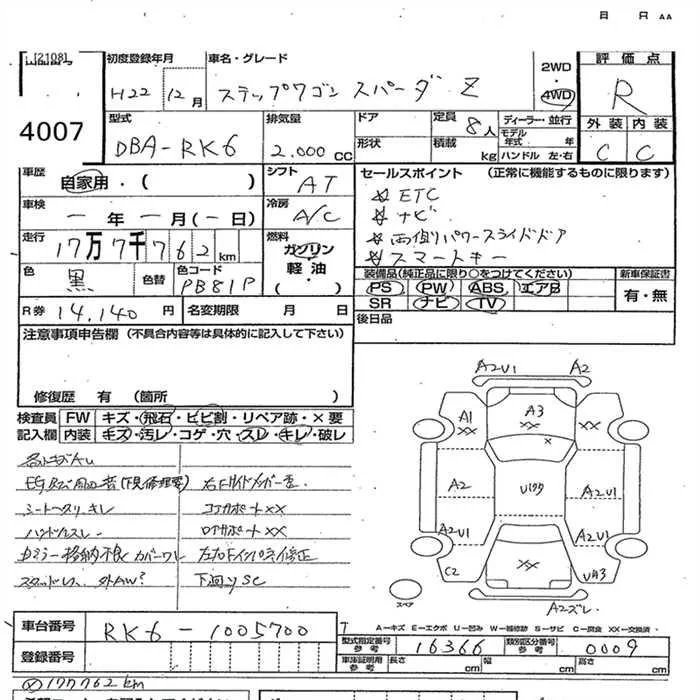 月 日 AA
初度登録年月 車名・グレード 2WD 評価点
H22 12月 ステップワゴン スパーダ Z 4WD R
4007
型式 排気量 ドア 定員 ディーラー・並行 外装 内装
DBA-RK6 2.000cc 形状 8人 積載 kg モデル年式 年 ハンドル 左・右 C C
車歴 自家用・( ) シフト AT セールスポイント (正常に機能するものに限ります)
☆ ETC
車検 ー年ー月(ー日) 冷房 A/C ☆ ナビ
走行 17万7千762km 燃料 ガソリン・軽油・( ) ☆ 両側パワースライドドア
☆ スマートキー
色 黒 色替 色コード PB81P 装備品(純正品に限り○をつけてください) 新車保証書
PS PW ABS エアB 有・無
SR ナビ TV
R券 14,140円 名変期限 月 日 後日品
注意事項申告欄 (不具合内容等は具体的に記入して下さい)
修復歴 有 (箇所 )
検査員 FW キズ・飛石・ヒビ割・リペア跡・×要
記入欄 内装 キズ・汚レ・コゲ・穴・スレ・キレ・破レ
シートヘタリ キレ コアサポート××
ハンドルスレ ロアサポート××
カミラー格納不良 カバーワレ
下回りSC
A2U1 A2
A1 ×× A3 ×× ××
×
A2 A2U1
A2U1 A2U1
C2 ×× UA3
スペア A2ズレ
A−キズ E−エクボ U−凹み W−補修跡 S−サビ C−腐食 ××−交換済
車台番号 RK6-1005700
型式指定番号 16366 類別区分番号 0009
登録番号 車庫証明用参考 長さ cm 幅 cm 高さ cm
177762km